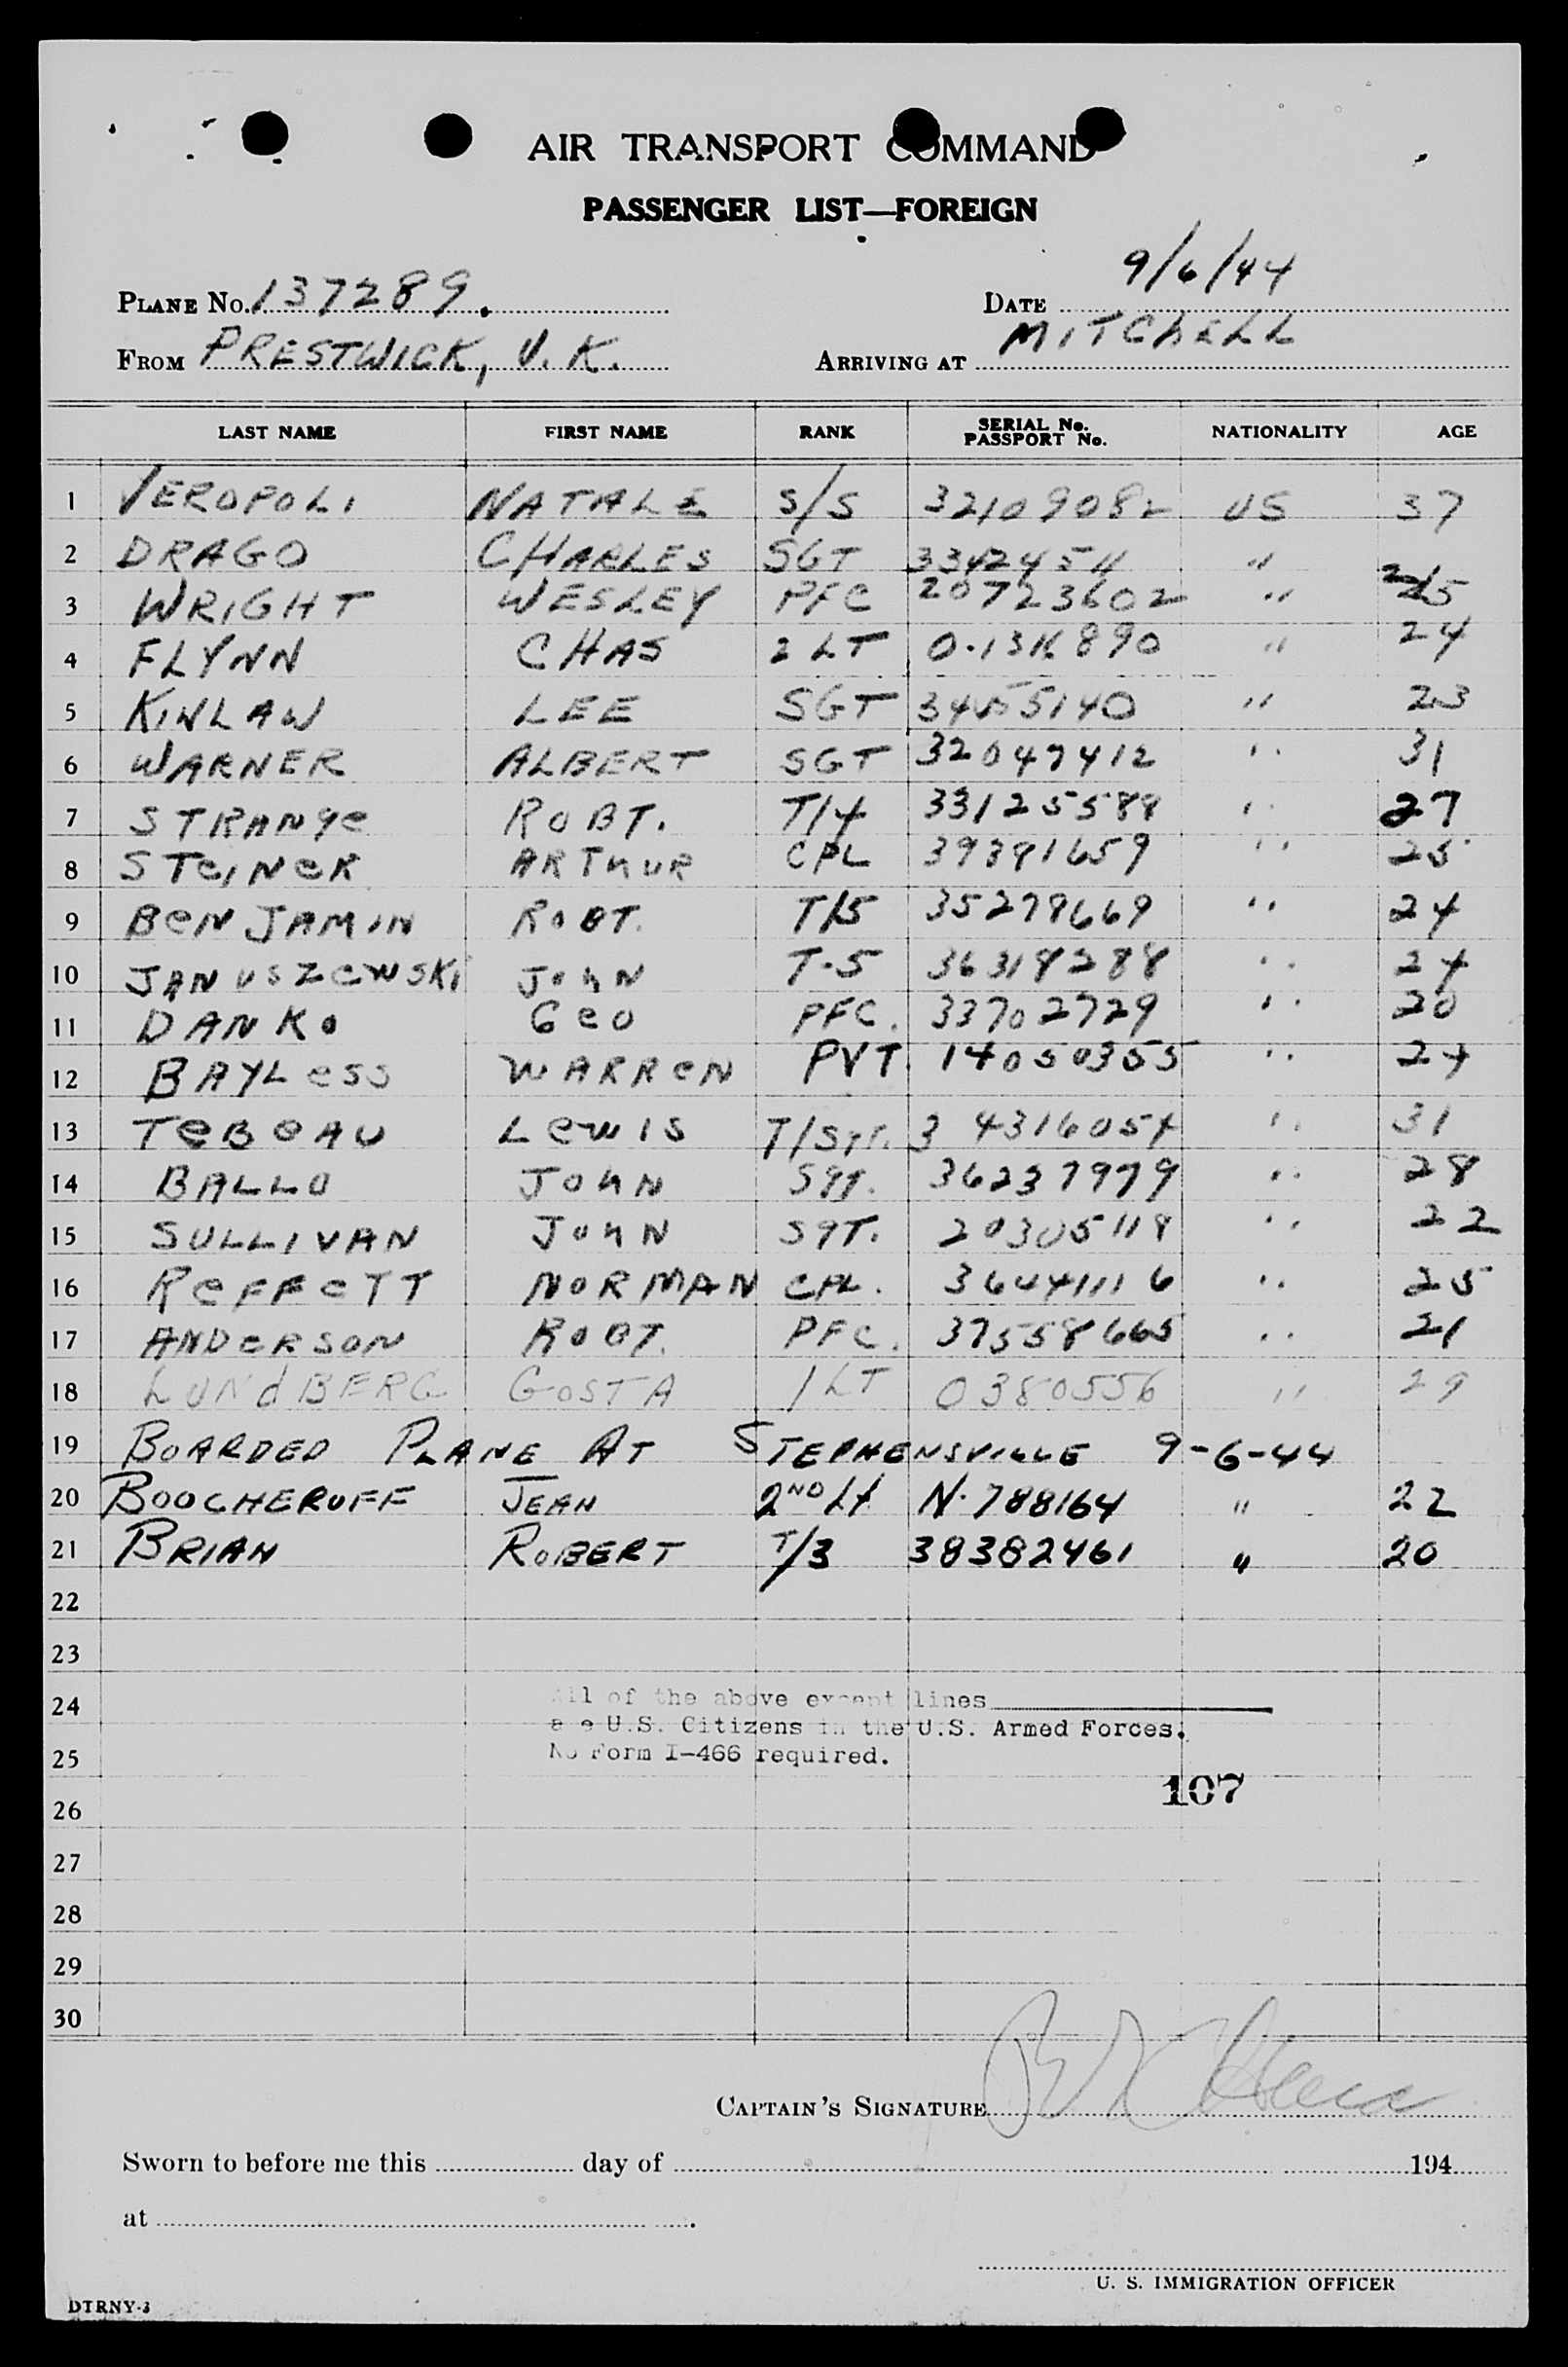 AIR TRANSPORT COMMAND
PASSENGER LIST—FOREIGN
PLANE No. 137289. DATE 9/6/44
FROM PRESTWICK, U.K. ARRIVING AT MITCHELL
LAST NAME FIRST NAME RANK SERIAL No. PASSPORT No. NATIONALITY AGE
1 VEROPOLI NATALE S/S 32109082 US 37
2 DRAGO CHARLES SGT "
3 WRIGHT WESLEY PFC 20723602 " 25
4 FLYNN CHAS 2 LT " 24
5 KINLAW LEE SGT " 23
6 WARNER ALBERT SGT 32047412 " 31
7 STRANge ROBT. T/4 33125588 " 27
8 STeiNeR ARThUR CPL 39381659 " 25
9 BeNJAMIN ROBT. T/5 35279669 " 24
10 JANUSZeWSKi JohN T-5 36318288 " 24
11 DANKo Geo PFC. 33702729 " 20
12 BAYLess WARReN PVT. 14050355 " 24
13 TeBeAU LewIS T/SgT. 34316054 " 31
14 BALLO JohN SgT. 36237979 " 28
15 SULLIVAN JohN SgT. 20305118 " 22
16 ReFFeTT NORMAN CPL. 36441116 " 25
17 ANDeRSON ROBT. PFC. 37558665 " 21
18 LUNdBERG GOSTA 1 LT 0380556 " 29
19 BOARDED PLANE AT STEPHENSVILLE 9-6-44
20 BOOCHEROFF JEAN 2ND Lt N-788164 " 22
21 BRIAN ROBERT T/3 38382461 " 20
22
23
24 All of the above except lines
are U.S. Citizens in the U.S. Armed Forces.
25 No Form I-466 required.
107
26
27
28
29
30
CAPTAIN'S SIGNATURE
Sworn to before me this day of 194
at .
U. S. IMMIGRATION OFFICER
DTRNY-3